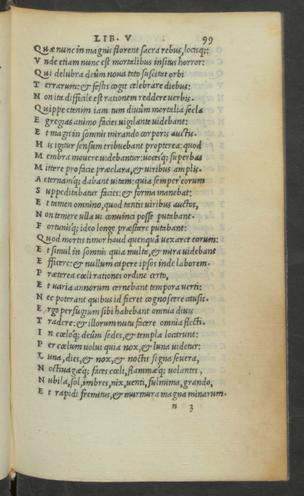 LIB. V 99
Quæ nunc in magnis florent sacra rebus, locisq;
Vnde etiam nunc est mortalibus insitus horror:
Qui delubra deûm noua toto suscitet orbi
Terrarum: & festis cogit celebrare diebus:
Non ita difficile est rationem reddere verbis.
Quippe etenim iam tum diuûm mortalia secla
Egregias animo facies uigilante uidebant:
Et magis in somnis mirando corporis auctu.
His igitur sensum tribuebant propterea: quod
Membra mouere uidebantur: uocesq; superbas
Mittere pro facie præclara, & uiribus amplis.
Aeternamq; dabant uitam: quia semper eorum
Suppeditabatur facies: & forma manebat:
Et tamen omnino, quod tantis uiribus auctos,
Non temere ulla ui conuinci posse putebant.
Fortunisq; ideo longe præstare putebant:
Quod mortis timor haud quenquã uexaret eorum:
Et simul in somnis quia multa, & mira uidebant
Efficere: & nullum capere ipsos inde laborem.
Præterea cœli rationes ordine certo,
Et uaria annorum cernebant tempora uerti:
Nec poterant quibus id fieret cognoscere causis.
Ergo perfugium sibi habebant omnia diuis
Tradere: & illorum nutu facere omnia flecti.
In cœloq; deûm sedes, & templa locarunt:
Per cœlum uolui quia nox, & luna uidetur:
Luna, dies, & nox, & noctis signa seuera,
Noctiuagæq; faces cœli, flammæq; uolantes,
Nubila, sol, imbres, nix, uenti, fulmina, grando,
Et rapidi fremitus, & murmura magna minarum.
n 3